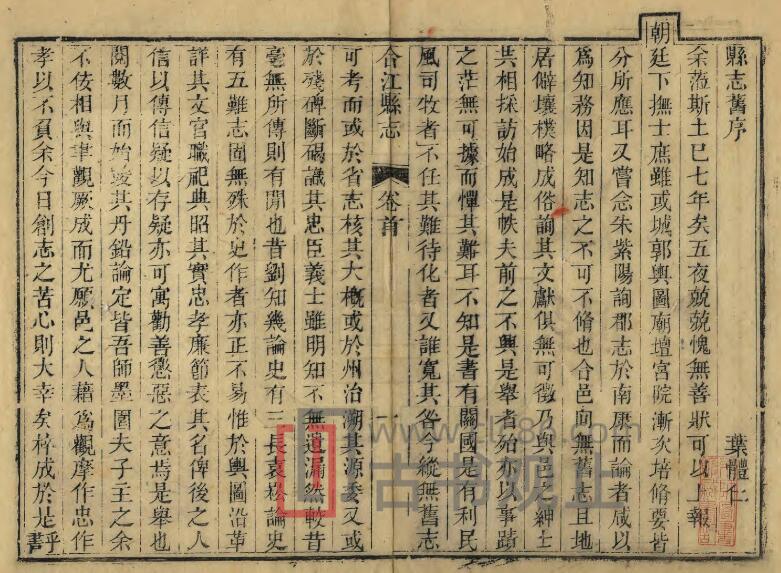 縣志舊序
葉體仁
余蒞斯土已七年矣五夜兢兢愧無善狀可以上報
朝廷下撫士庶雖或城郭輿圖廟壇宮院漸次培脩要皆
分所應耳又嘗念朱紫陽詢郡志於南康而論者咸以
爲知務因是知志之不可不脩也合邑向無舊志且地
居僻壤樸略成俗詢其文獻俱無可徵乃與邑之紳士
共相採訪始成是帙夫前之不興是舉者殆亦以事蹟
之茫無可據而憚其難耳不知是書有關國是有利民
風司牧者不任其難待化者又誰寬其咎今縱無舊志
合江縣志
卷首
一
可考而或於省志核其大概或於州治溯其源委又或
於殘碑斷碣識其忠臣義士雖明知不無遺漏然較昔
毫無所傳則有間也昔劉知幾論史有三長袁崧論史
有五難志固無殊於史作者亦正不易惟於輿圖沿革
詳其文官職祀典昭其實忠孝廉節表其名俾後之人
信以傳信疑以存疑亦可寓勸善懲惡之意焉是舉也
閱數月而始竣其丹鉛論定皆吾師墨園夫子主之余
不佞相與聿觀厥成而尤願邑之人藉爲觀摩作忠作
孝以不負余今日創志之苦心則大幸矣梓成於是乎書
www.cn86.com
古书观止